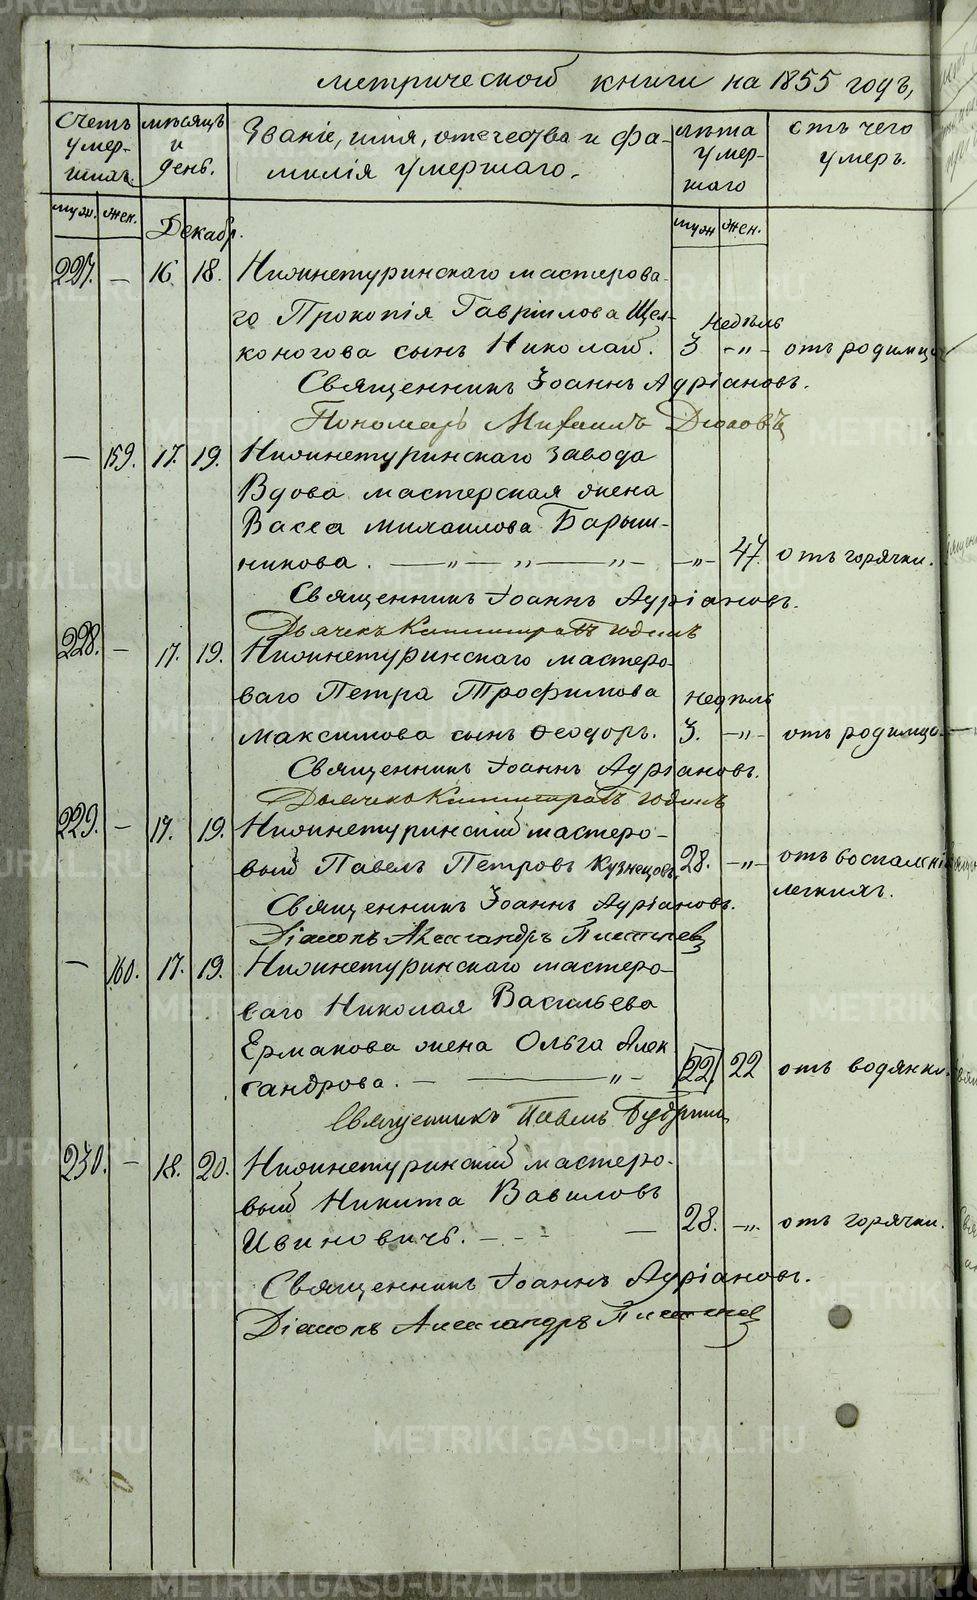 метрической книги на 1855 годъ,
Счетъ умер-шихъ.
мѣсяцъ и день.
Званіе, имя, отечество и фа-
милія умершаго.
лѣта умер-шаго
отъ чего умеръ.
муж. жен.
Декабр.
муж жен.
227. — 16. 18. Нижнетуринскаго мастерова-
го Прокопія Гавріилова Щел-
недѣль
коногова сынъ Николай. 3 -„- отъ родимца
Священникъ Іоаннъ Адріановъ.
Пономарь Михаилъ
— 159. 17. 19. Нижнетуринскаго завода
Вдова мастерская жена
Васса Михаилова Барыш-
никова. — „ — „ — „ — -„- 47. отъ горячки.
Священникъ Іоаннъ Адріановъ.
Дьячекъ
228. — 17. 19. Нижнетуринскаго мастеро-
ваго Петра Трофимова
недѣль
Максимова сынъ Ѳеодоръ. 3. -„- отъ родимца
Священникъ Іоаннъ Адріановъ.
229. — 17. 19. Нижнетуринскій мастеро-
вый Павелъ Петровъ Кузнецовъ. 28. -„- отъ воспаленія
легкихъ.
Священникъ Іоаннъ Адріановъ.
Діаконъ Александръ
— 160. 17. 19. Нижнетуринскаго мастеро-
ваго Николая Васильева
Ермакова жена Ольга Алек
сандрова. — — „ - 22 22 отъ водянки.
Священникъ Павелъ
230. — 18. 20. Нижнетуринскій мастеро-
вый Никита Вавиловъ
Ивиновичъ. — - - — 28. -„- отъ горячки.
Священникъ Іоаннъ Адріановъ.
Діаконъ Александръ
METRIKI.GASO-URAL.RU